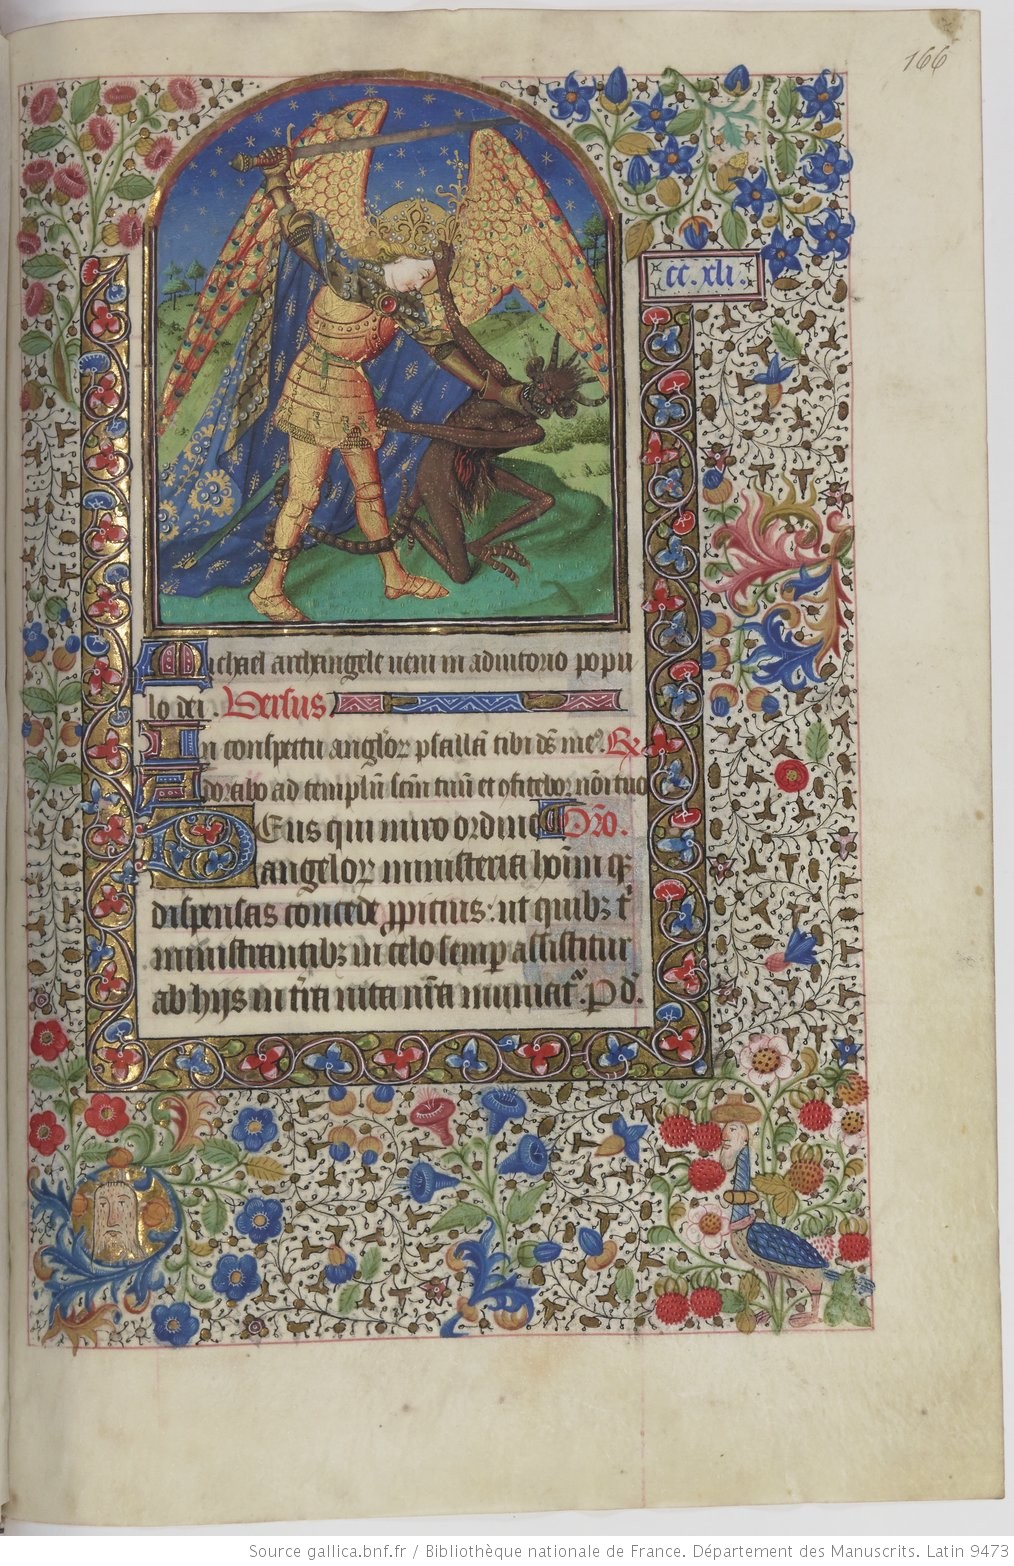 166
cc. xli.
Michael archangele veni in adiutorio popu
lo dei. Versus
In conspectu anglor psallā tibi ds me9. Rx
Adorabo ad templū scm tuū et ofitebor nōi tuo
Deus qui miro ordine Orō.
angelor ministeria hoīm q3
dispensas concede ꝓpicius: ut quib3 t̄
ministrantib3 in celo semp assistitur
ab hijs in tr̄a vita nr̄a muniat~. P d̄.
Source gallica.bnf.fr / Bibliothèque nationale de France. Département des Manuscrits. Latin 9473